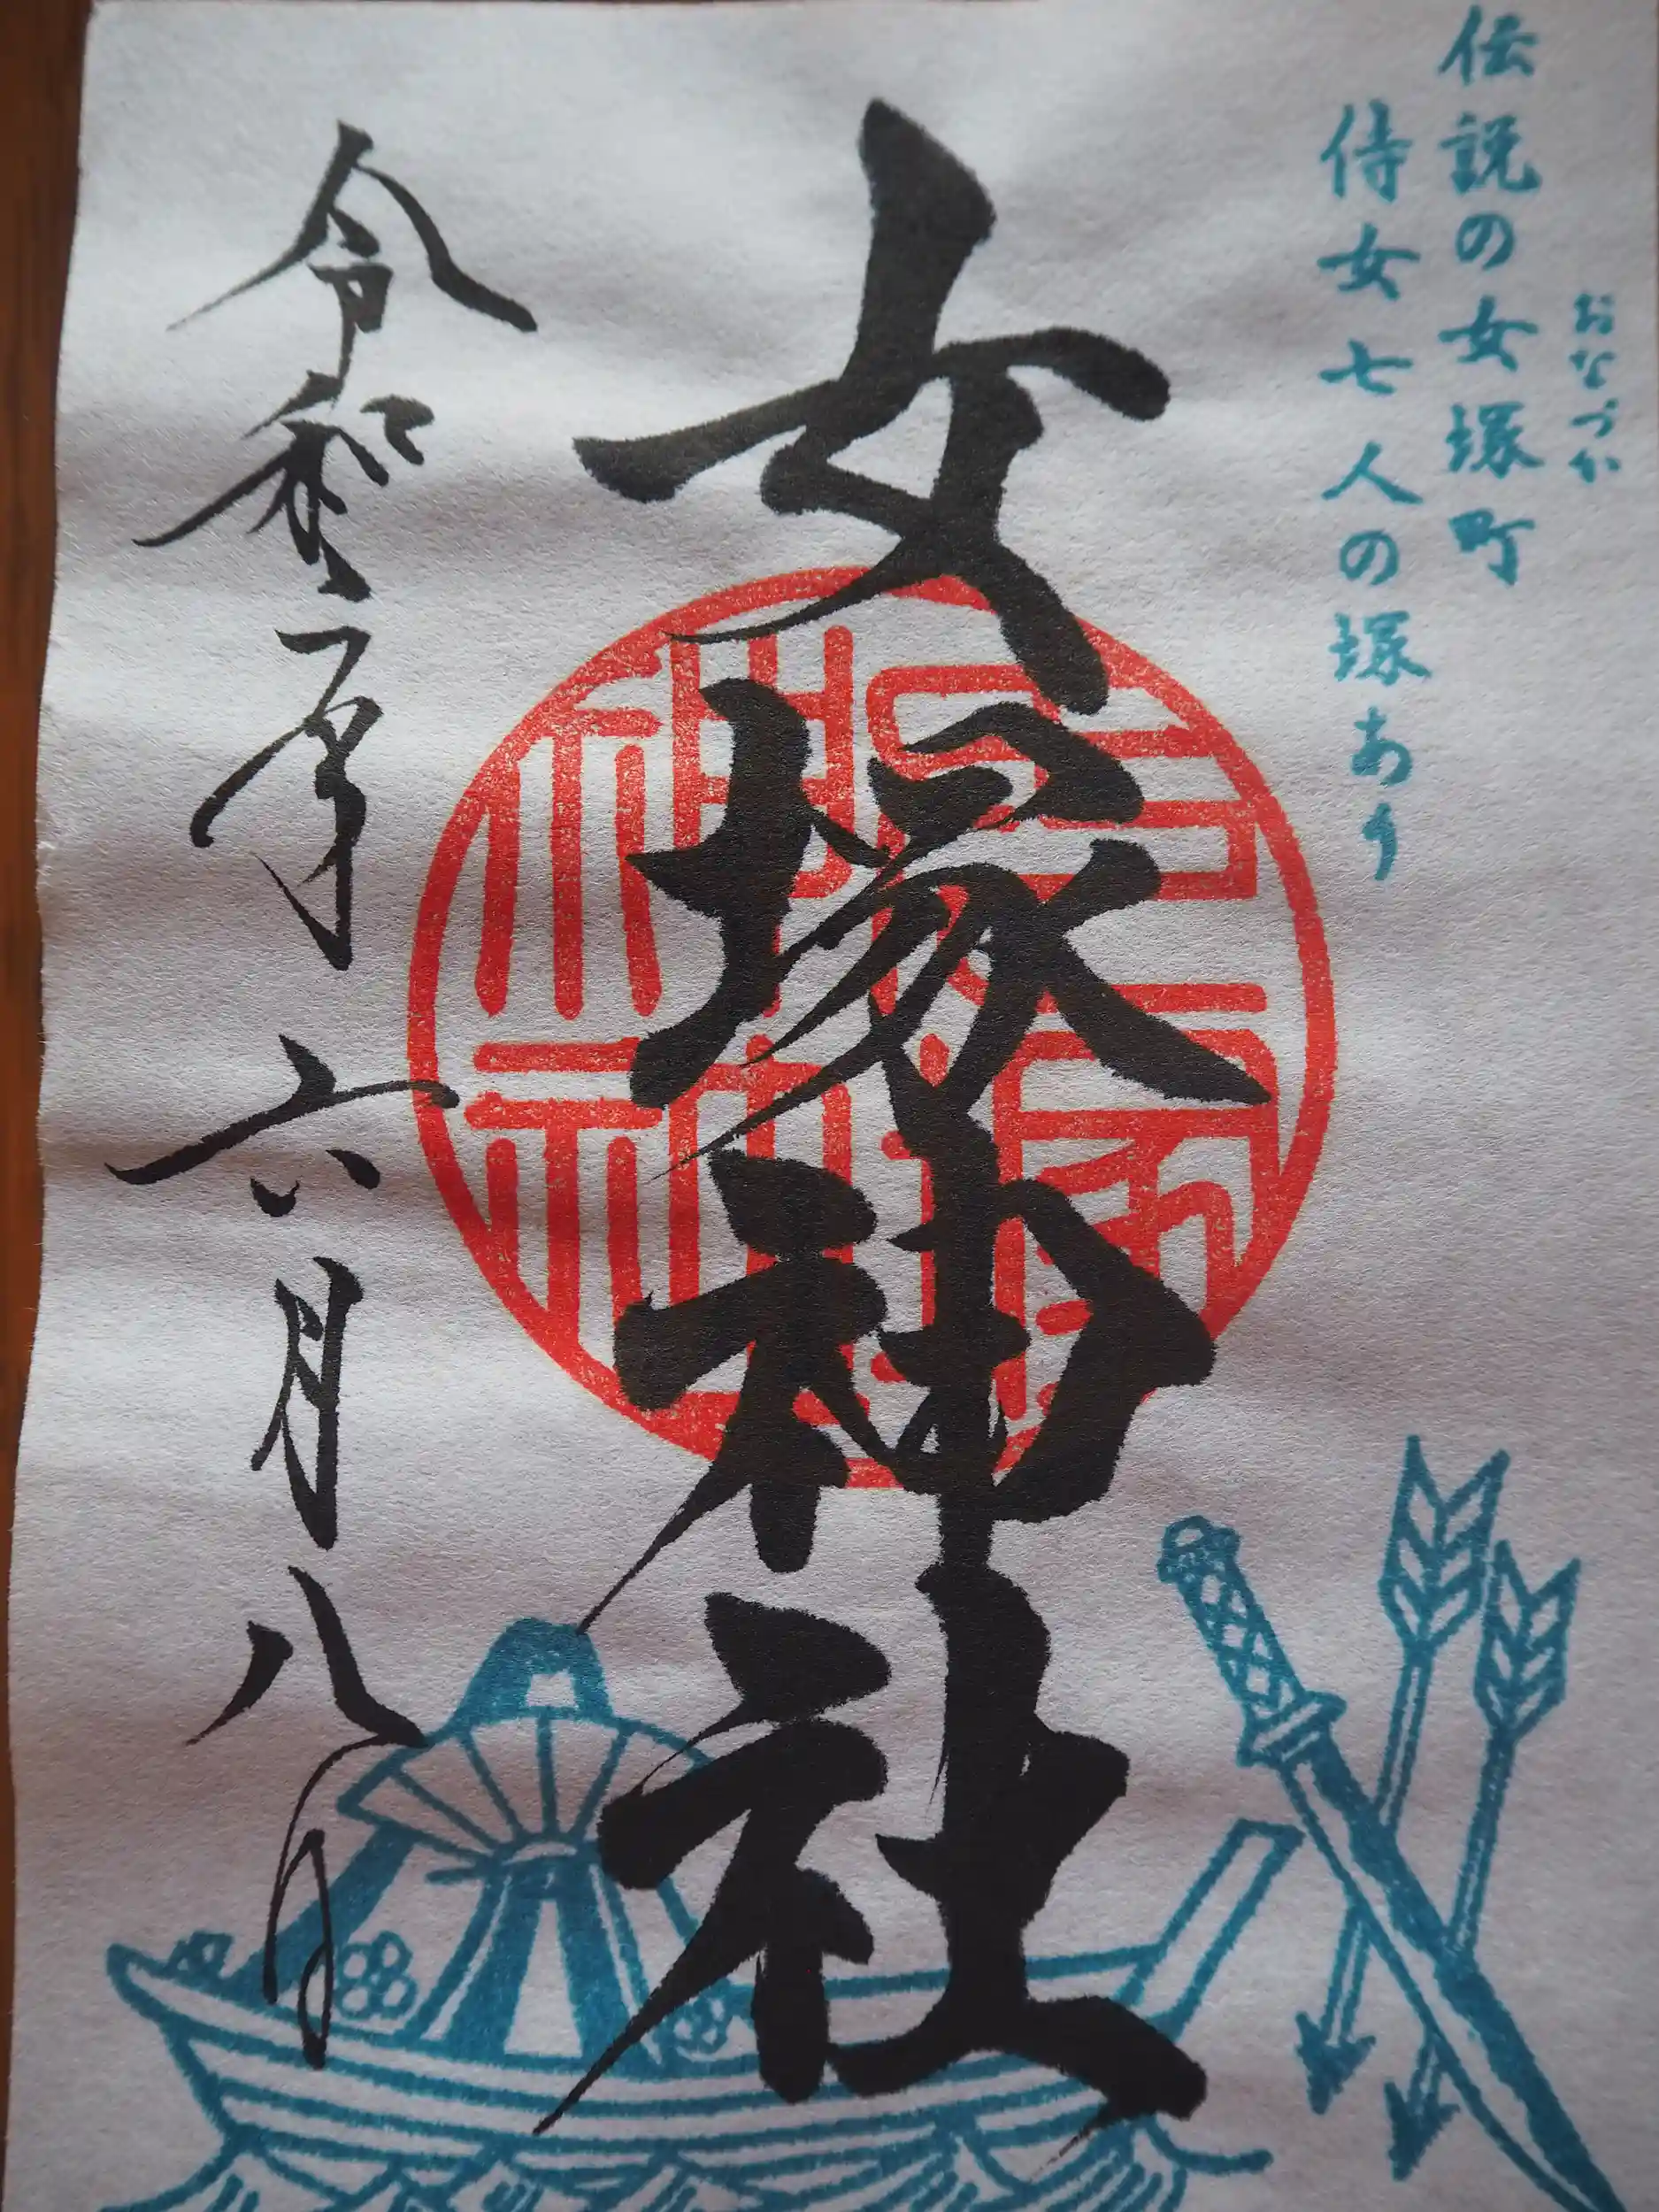 おなづか
伝説の女塚町
侍女七人の塚あり
女塚神社
令和元年六月八日